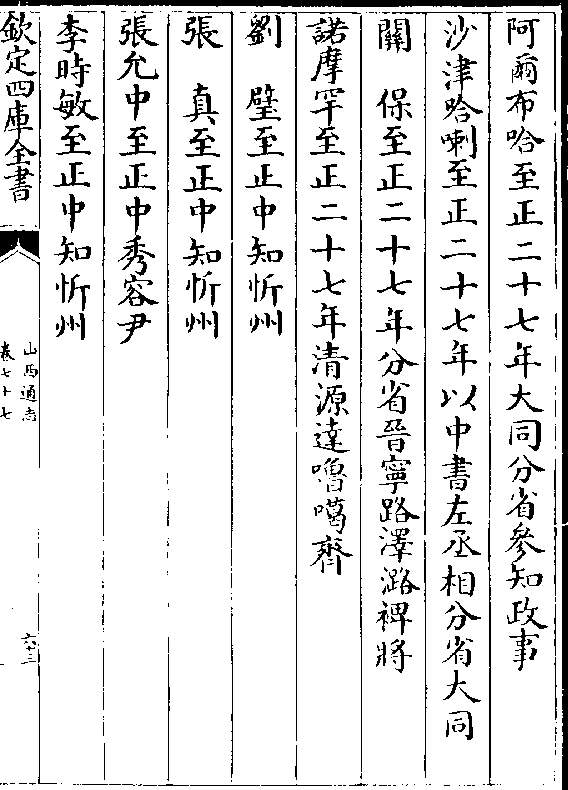 阿爾布哈至正二十七年大同分省參知政事
沙津哈喇至正二十七年以中書左丞相分省大同
關　保至正二十七年分省晉寧路澤潞裨將
諾摩罕至正二十七年清源達嚕噶齊
劉　璧至正中知忻州
張　真至正中知忻州
張允中至正中秀容尹
李時敏至正中知忻州
欽定四庫全書
山西通志
卷七十七
六十三